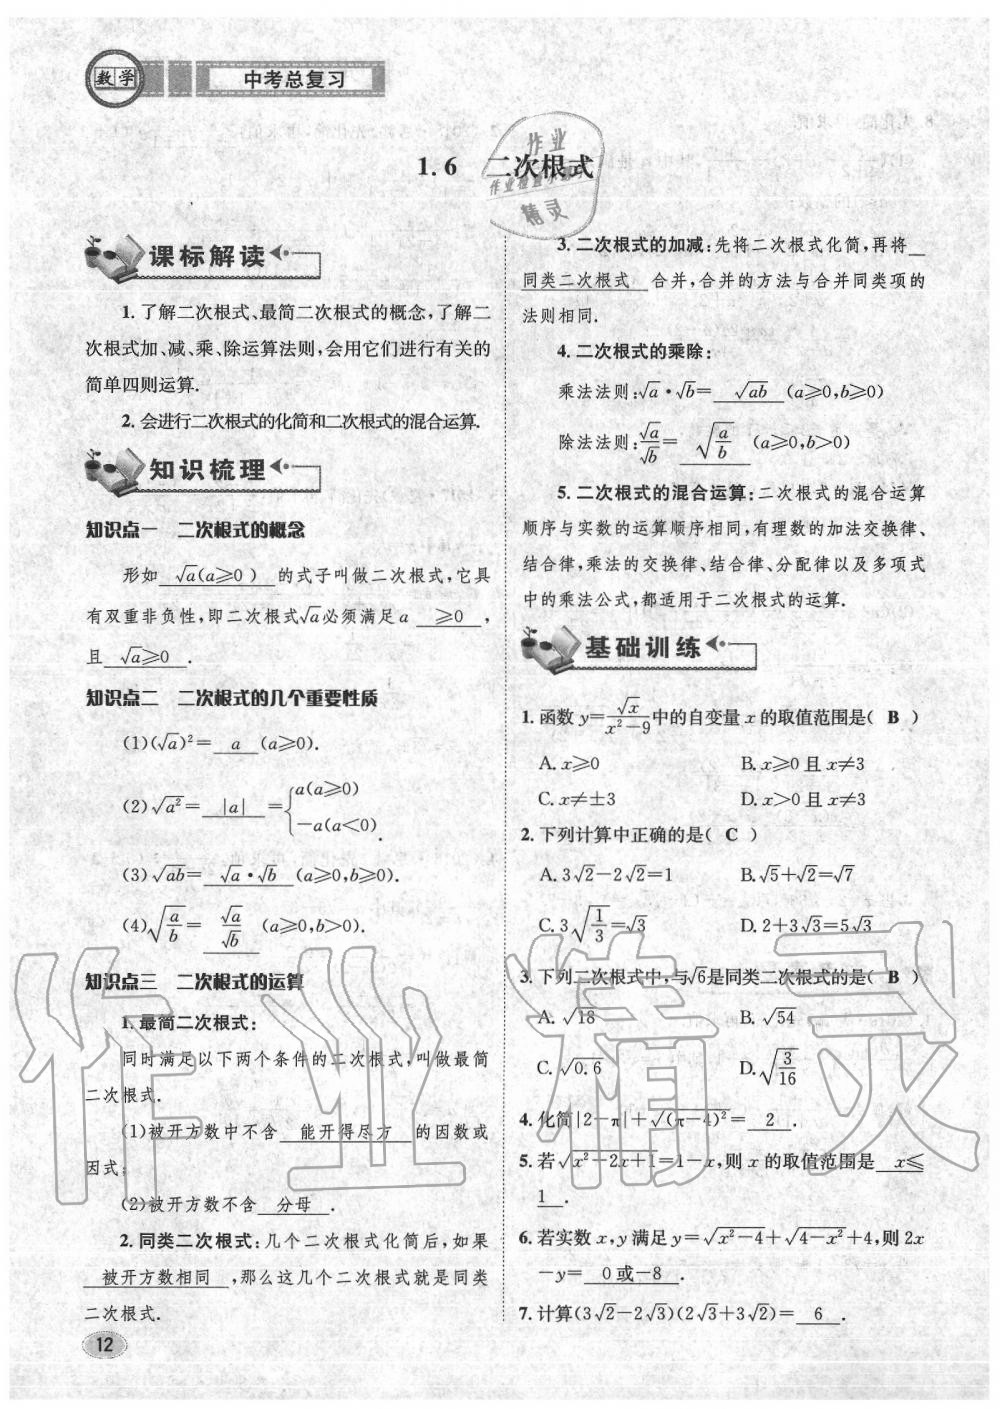 数学
中考总复习
1.6 二次根式
作业
作业检查小助手
精灵
课标解读
1. 了解二次根式、最简二次根式的概念,了解二
次根式加、减、乘、除运算法则,会用它们进行有关的
简单四则运算.
2. 会进行二次根式的化简和二次根式的混合运算.
知识梳理
知识点一 二次根式的概念
形如 √a(a≥0) 的式子叫做二次根式,它具
有双重非负性,即二次根式√a必须满足a ≥0 ,
且 √a≥0 .
知识点二 二次根式的几个重要性质
(1)(√a)²= a (a≥0).
(2)√a²= |a| ={a(a≥0)
−a(a<0).
(3)√ab= √a·√b (a≥0,b≥0).
(4)√(a/b)= √a/√b (a≥0,b>0).
知识点三 二次根式的运算
1. 最简二次根式:
同时满足以下两个条件的二次根式,叫做最简
二次根式.
(1)被开方数中不含 能开得尽方 的因数或
因式;
(2)被开方数不含 分母 .
2. 同类二次根式:几个二次根式化简后,如果
被开方数相同 ,那么这几个二次根式就是同类
二次根式.
12
3. 二次根式的加减:先将二次根式化简,再将
同类二次根式 合并,合并的方法与合并同类项的
法则相同.
4. 二次根式的乘除:
乘法法则:√a·√b= √ab (a≥0,b≥0)
除法法则:√a/√b= √(a/b) (a≥0,b>0)
5. 二次根式的混合运算:二次根式的混合运算
顺序与实数的运算顺序相同,有理数的加法交换律、
结合律,乘法的交换律、结合律、分配律以及多项式
中的乘法公式,都适用于二次根式的运算.
基础训练
1. 函数y=√x/(x²−9)中的自变量x的取值范围是( B )
A. x≥0 B. x≥0且x≠3
C. x≠±3 D. x>0且x≠3
2. 下列计算中正确的是( C )
A. 3√2−2√2=1 B. √5+√2=√7
C. 3√(1/3)=√3 D. 2+3√3=5√3
3. 下列二次根式中,与√6是同类二次根式的是( B )
A. √18 B. √54
C. √0.6 D. √(3/16)
4. 化简|2−π|+√(π−4)²= 2 .
5. 若√(x²−2x+1)=1−x,则x的取值范围是 x≤
1 .
6. 若实数x,y满足y=√(x²−4)+√(4−x²)+4,则2x
−y= 0或−8 .
7. 计算(3√2−2√3)(2√3+3√2)= 6 .
作业精灵